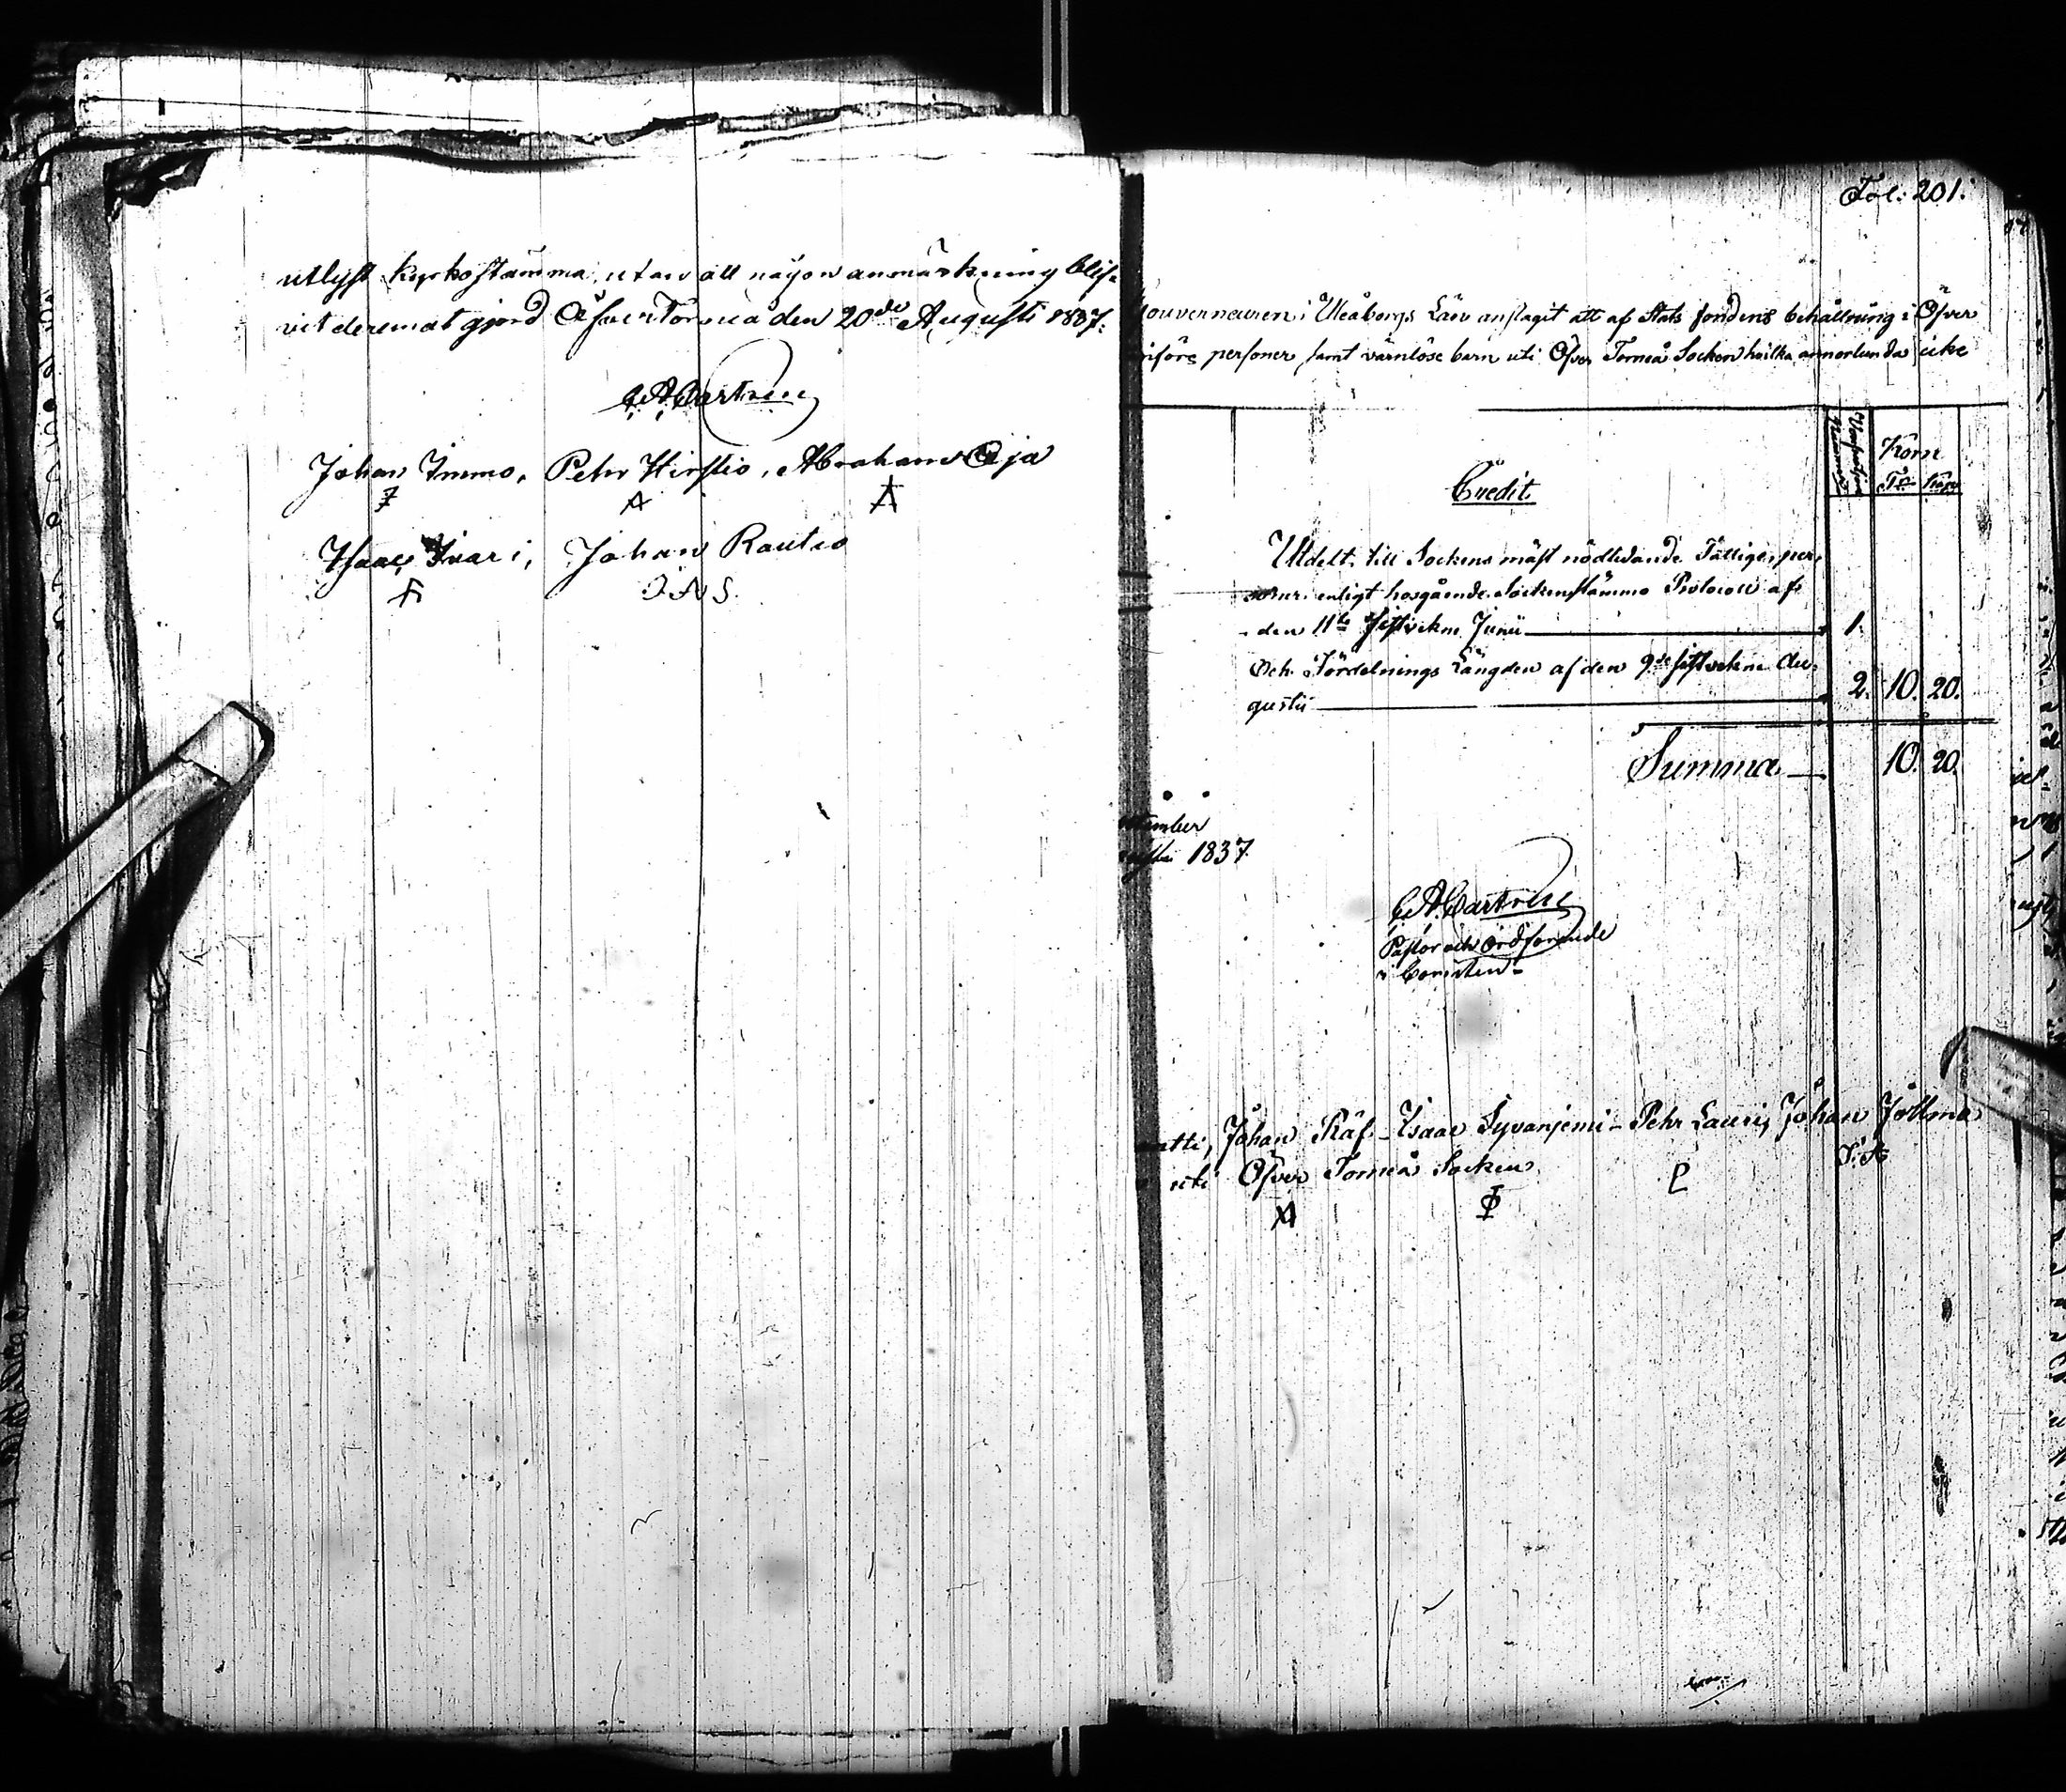 utlyst Kyrkostämma, utan att någon anmärkning blif-
vit deremot gjord Öfver Torneå den 20de Augusti 1837.
C. A. Castrén
Johan Immo, Pehr Hirstio, Abraham Oja
Isaac Juari, Johan Rautio
J. A. S.
Fol: 201.
Gouverneuren i Uleåborgs Län anslagit att af Stats fondens behållning i Öfver
personer, samt värnlöse barn uti Öfver Torneå Socken hvilka annorlunda icke
Credit.
Korn
Tr Kapp
Utdelt till Sockens mäst nödlidande Fattige per-
soner enligt hosgående Sockenstämmo Protocoll af
den 11te sistvekne Junii 1.
Och Fördelnings Längden af den 9de sistvekne Au-
gusti 2. 10. 20.
Summa 10. 20.
tember
1837.
C. A. Castrén
Pastor och Ordförande
i Comitén
Johan Räf - Isaac Syvänjemi - Pehr Lauri, Johan Jollma
uti Öfver Torneå Socken
P
J. A